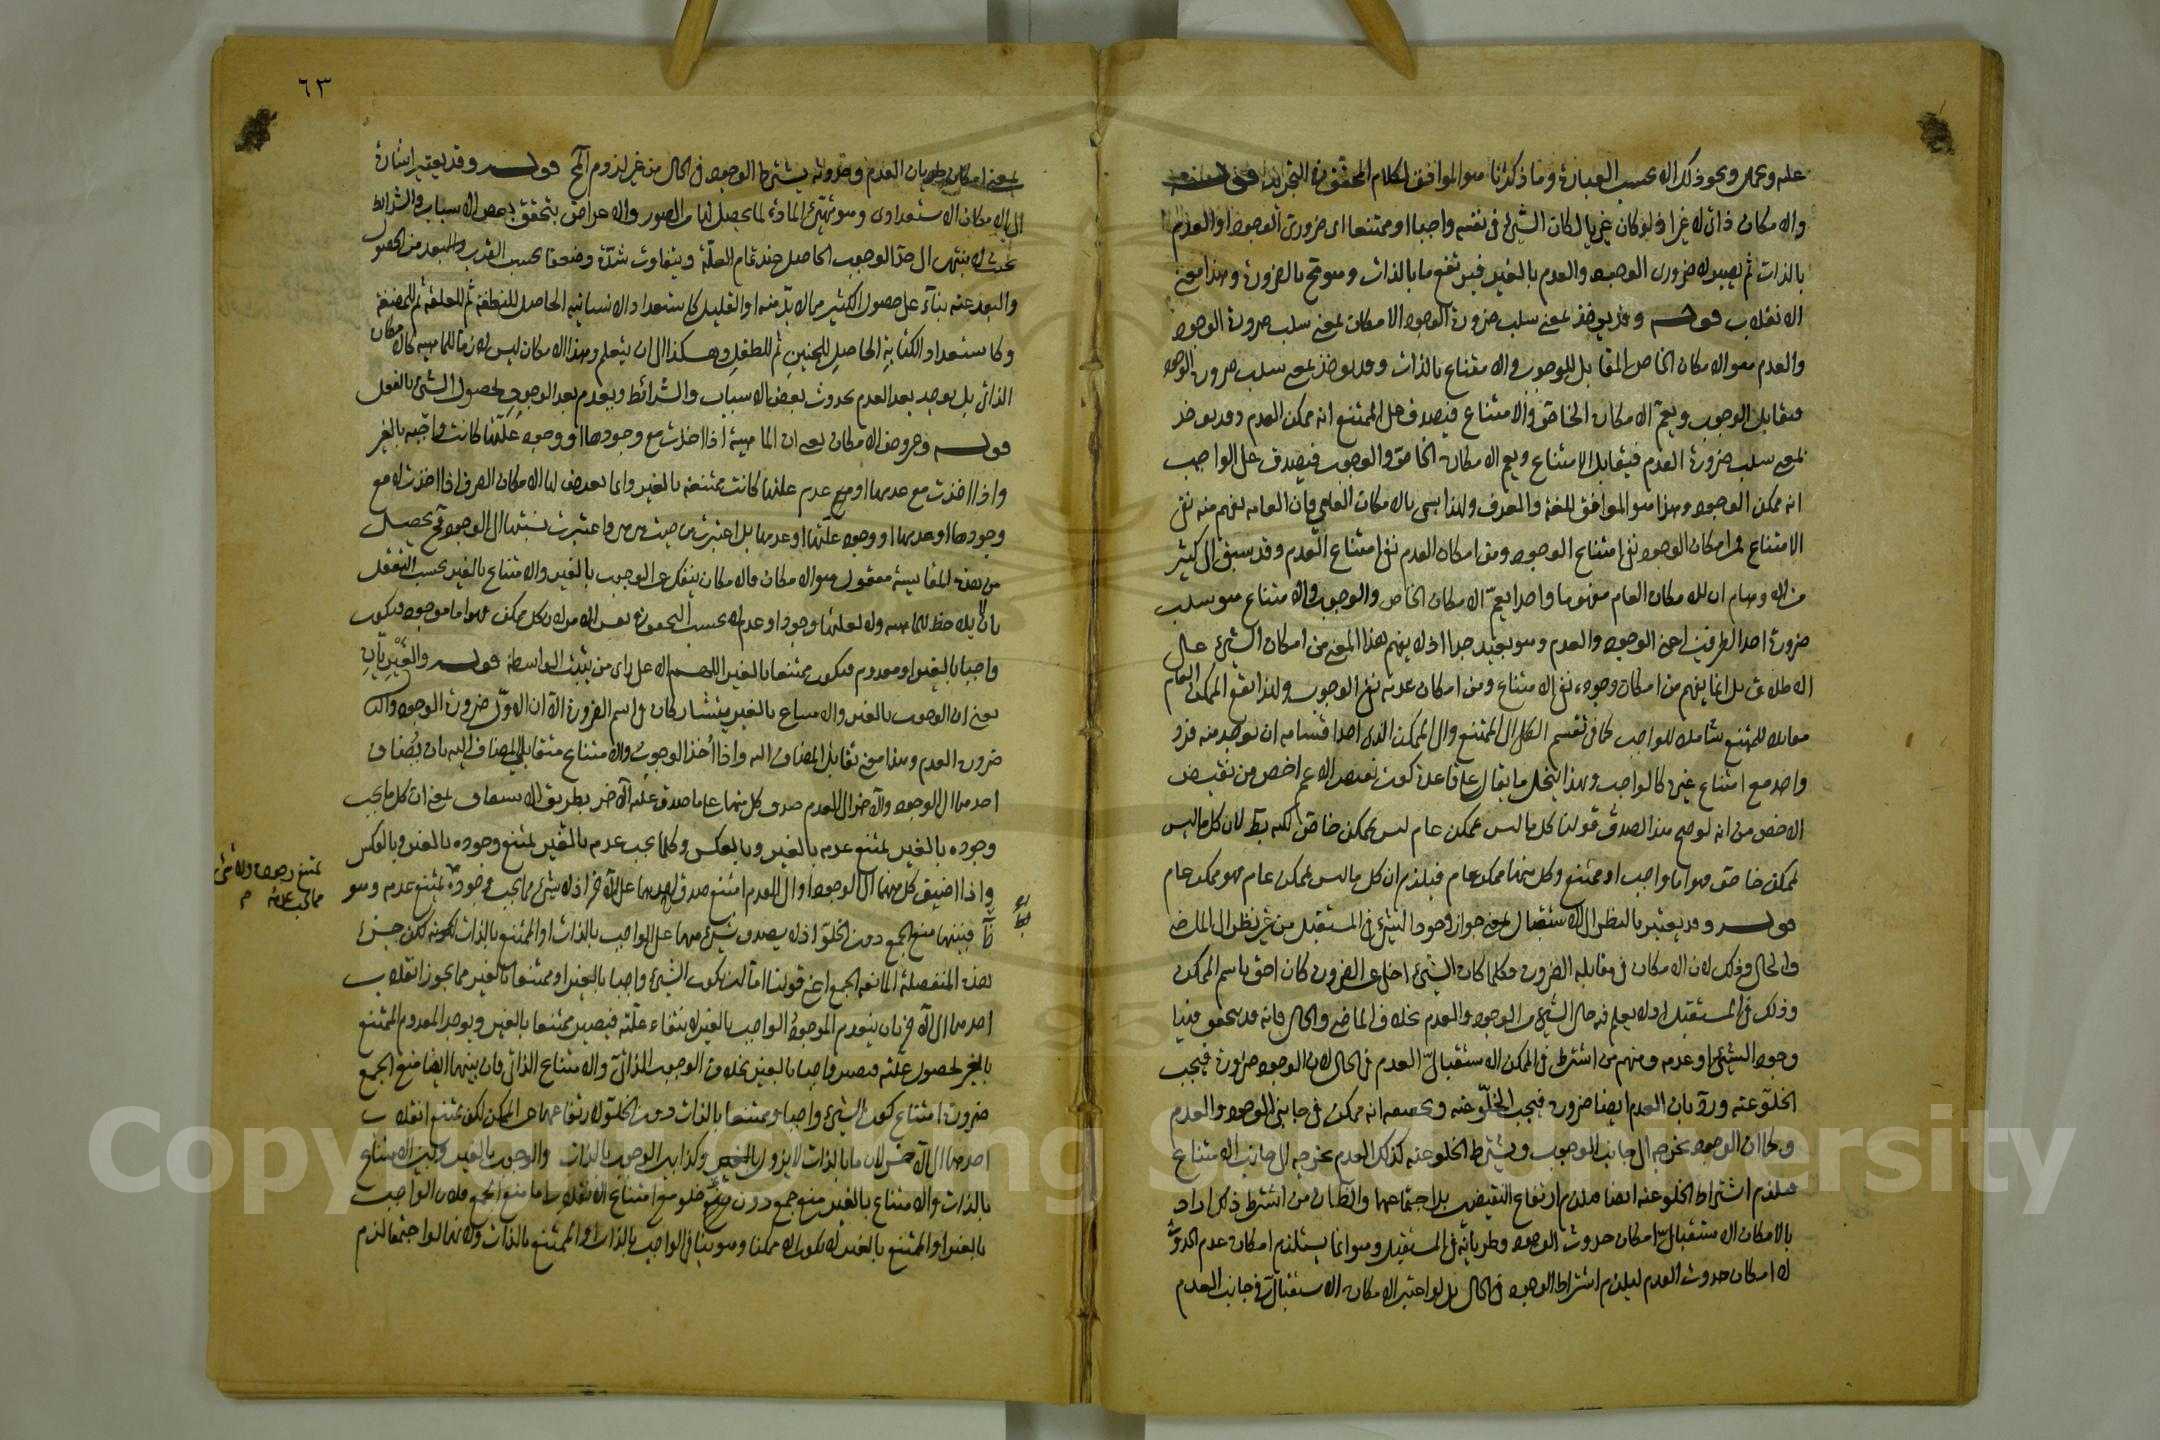 عليه وعمل ونحو ذلك الا بحسب العبارة وما ذكرنا هو الموافق لكلام المحقق في التجريد
والامكان ذاتي لا غير اذ لو كان غيريا لكان الشيء في نفسه واجبا او ممتنعا اي ضروري الوجود او العدم
بالذات ثم يصير لا ضروري الوجود والعدم بالغير فيرتفع ما بالذات وهو مح بالضرورة وهذا معنى
الانقلاب قوله وقد يوخذ بمعنى سلب ضرورة الوجود الامكان بمعنى سلب ضرورة الوجود
والعدم هو الامكان الخاص المقابل للوجوب والامتناع بالذات وقد يوخذ بمعنى سلب ضرورة الوجود
فيقابل الوجوب ويعم الامكان الخاص والامتناع فيصدق على الممتنع انه ممكن العدم وقد يوخذ
بمعنى سلب ضرورة العدم فيقابل الامتناع ويعم الامكان الخاص والوجوب فيصدق على الواجب
انه ممكن الوجود وهذا هو الموافق للغة والعرف ولهذا يسمى بالامكان العامي فان العامه تفهم منه نفي
الامتناع فمن امكان الوجود نفي امتناع الوجود ومن امكان العدم نفي امتناع العدم وقد سبق الى كثير
من الاوهام ان للامكان العام مفهوما واحدا يعم الامكان الخاص والوجوب والامتناع هو سلب
ضرورة احد الطرفين اعني الوجود والعدم وهو بعيد جدا اذ لا يفهم هذا المعنى من امكان الشيء على
الاطلاق بل انما يفهم من امكان وجوده نفي الامتناع ومن امكان عدمه نفي الوجوب ولهذا يقع الممكن العام
مقابلا للممتنع شاملا للواجب كما في تقسيم الكلي الى الممتنع والى الممكن الذي احد اقسامه ان يوجد منه فرد
واحد مع امتناع غيره كالواجب وبهذا ينحل ما يقال على قاعدة كون نقيض الاعم اخص من نقيض
الاخص من انه لو صح هذا لصدق قولنا كل ما ليس بممكن عام ليس بممكن خاص لكنه بط لان كل ما ليس
بممكن خاص فهو اما واجب او ممتنع وكل منهما ممكن عام فيلزم ان كل ما ليس بممكن عام فهو ممكن عام
قوله وقد يعتبر بالنظر الى الاستقبال بمعنى جواز وجود الشيء في المستقبل من غير نظر الى الماضي
والحال وذلك لان الامكان في مقابلة الضرورة وكلما كان الشيء اخلى عن الضرورة كان احق باسم الممكن
وذلك في المستقبل اذ لا يعلم فيه حال الشيء من الوجود والعدم بخلاف الماضي والحال فانه قد تحقق فيهما
وجود الشيء او عدمه ومنهم من اشترط في الممكن الاستقبالي العدم في الحال لان الوجود ضرورة فيجب
الخلو عنه ورد بان العدم ايضا ضرورة فيجب الخلو عنه وتحقيقه انه ممكن في جانبي الوجود والعدم
وكما ان الوجود يخرجه الى جانب الوجوب ويشترط الخلو عنه كذلك العدم يخرجه الى جانب الامتناع
فيلزم اشتراط الخلو عنه ايضا فيلزم ارتفاع النقيضين بل اجتماعهما والظاهر ان من اشترط ذلك اراد
بالامكان الاستقبالي امكان حدوث الوجود وطريانه في المستقبل وهو انما يستلزم امكان عدم الحدوث
لا امكان حدوث العدم ليلزم اشتراط الوجود في الحال بل لو اعتبر الامكان الاستقبالي في جانب العدم
٦٣
بمعنى امكان طريان العدم وحدوثه يشترط الوجود في الحال من غير لزوم مح قوله وقد يعتبر اشارة
الى الامكان الاستعدادي وهو تهيئ المادة لما يحصل لها من الصور والاعراض بتحقق بعض الاسباب والشرائط
بحيث لا ينتهي الى حد الوجوب الحاصل عند تمام العلة ويتفاوت شدة وضعفا بحسب القرب والبعد من الحصول
والبعد عنه بناء على حصول الكثير مما لا بد منه او القليل كاستعداد الانسانيه الحاصل للنطفة ثم للعلقة ثم للمضغة
وكاستعداد الكتابة الحاصل للجنين ثم للطفل وهكذا الى ان يتعلم وهذا الامكان ليس لازما للماهيه كالامكان
الذاتي بل يوجد بعد العدم بحدوث بعض الاسباب والشرائط ويعدم بعد الوجود لحصول الشيء بالفعل
قوله وعروض الامكان يعني ان الماهية اذا اخذت مع وجودها او وجود علتها كانت واجبه بالغير
واذا اخذت مع عدمها او مع عدم علتها كانت ممتنعة بالغير وانما يعرض لها الامكان الصرف اذا اخذت لا مع
وجودها او عدمها او وجود علتها او عدمها بل اعتبرت من حيث هي هي واعتبرت نسبتها الى الوجود فح يحصل
من هذه المقايسة معقول هو الامكان فالامكان ينفك عن الوجوب بالغير والامتناع بالغير بحسب التعقل
بان لا يلاحظ للماهيه ولا لعلتها وجود او عدم لا بحسب التحقق في نفس الامر لان كل ممكن فهو اما موجود فيكون
واجبا بالغير او معدوم فيكون ممتنعا بالغير اللهم الا على راى من يثبت الواسطة قوله والغيريان
يعني ان الوجوب بالغير والامتناع بالغير يتشاركان في اسم الضرورة الا ان الاول ضرورة الوجود والثاني
ضرورة العدم وهذا معنى تقابل المضاف اليه واذا اخذ الوجوب والامتناع متقابلي المضاف اليه بان يضاف
احدهما الى الوجود والاخر الى العدم صدق كل منهما على ما صدق عليه الآخر بطريق الاشتقاق بمعنى ان كل ما يجب
وجوده بالغير يمتنع عدمه بالغير وبالعكس وكلما يجب عدمه بالغير يمتنع وجوده بالغير وبالعكس
واذا اضيف كل منهما الى الوجود او الى العدم امتنع صدق احدهما على الآخر اذ لا شيء مما يجب وجوده يمتنع عدمه وهو
ظ فبينهما منع الجمع دون الخلو اذ لا يصدق شيء منهما على الواجب بالذات او الممتنع بالذات لكن جزئي
هذه المنفصلة المانعة الجمع اعني قولنا اما ان يكون الشيء واجبا بالغير او ممتنعا بالغير مما يجوز انقلاب
احدهما الى الآخر بان ينعدم الموجود الواجب بالغير لانتفاء علته فيصير ممتنعا بالغير ويوجد المعدوم الممتنع
بالغير لحصول علته فيصير واجبا بالغير بخلاف الوجوب الذاتي والامتناع الذاتي فان بينهما ايضا منع الجمع
ضرورة امتناع كون الشيء واجبا وممتنعا بالذات دون الخلو لارتفاعهما عن الممكن لكن يمتنع انقلاب
احدهما الى الآخر لان ما بالذات لا يزول وكذا بين الوجوب بالذات والوجوب بالغير وبين الامتناع
بالذات والامتناع بالغير منع جمع دون خلو مع امتناع الانقلاب اما منع الجمع فلان الواجب
بالغير او الممتنع بالغير لا يكون الا ممكنا وهو ينافي الواجب بالذات او الممتنع بالذات ولانهما لو اجتمعا لزم
يمتنع وجوده ولا شيء
مما يجب عدمه